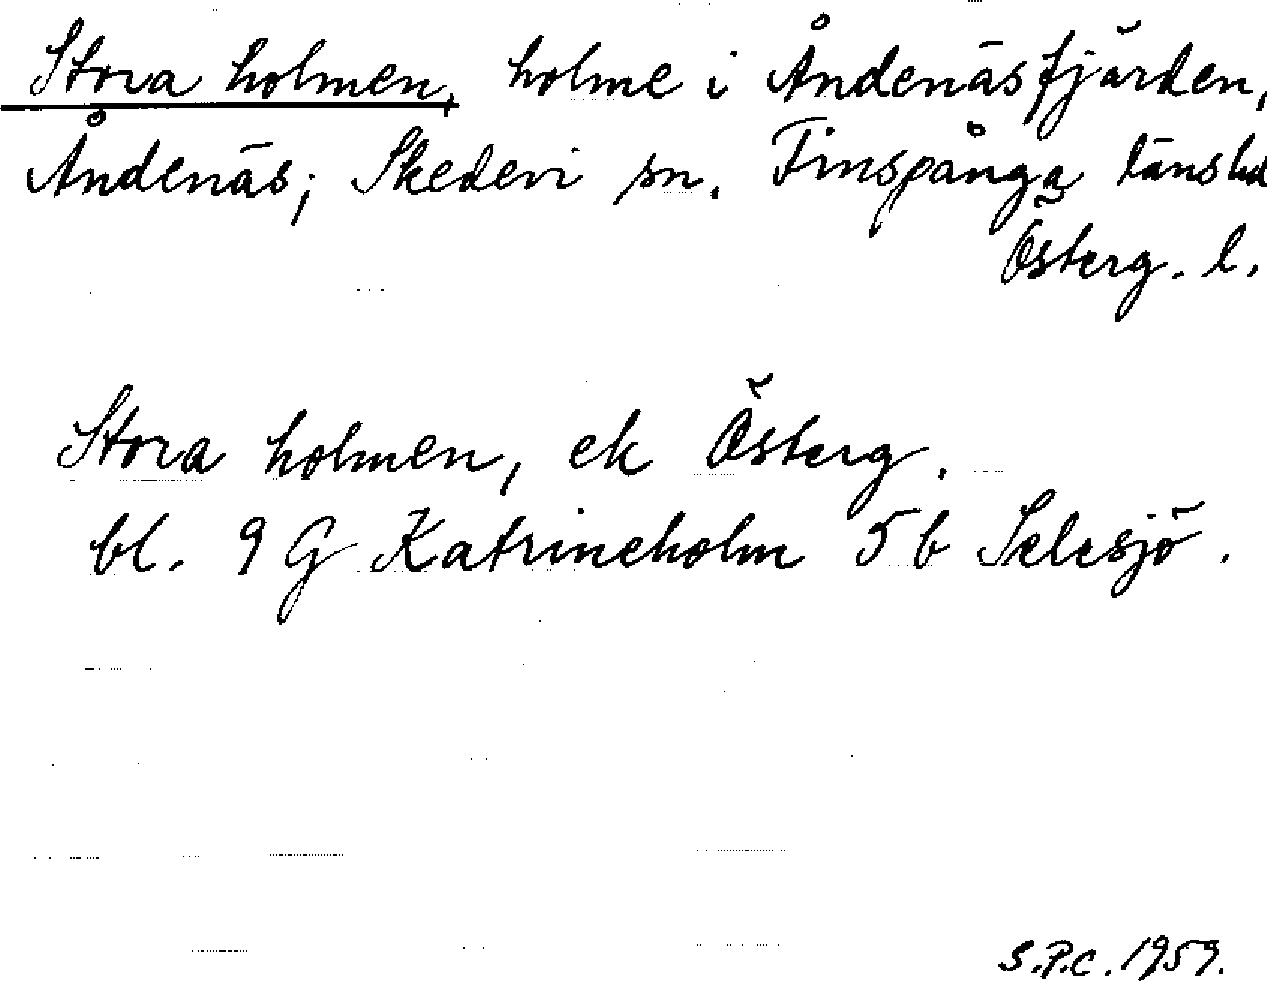 Stora holmen, holme i Åndenäsfjärden,
Åndenäs; Skedevi sn. Finspånga länshd
Österg. l.
Stora holmen, ek Österg.
bl. 9 G Katrineholm 5 b Selesjö.
S.P.C. 1959.